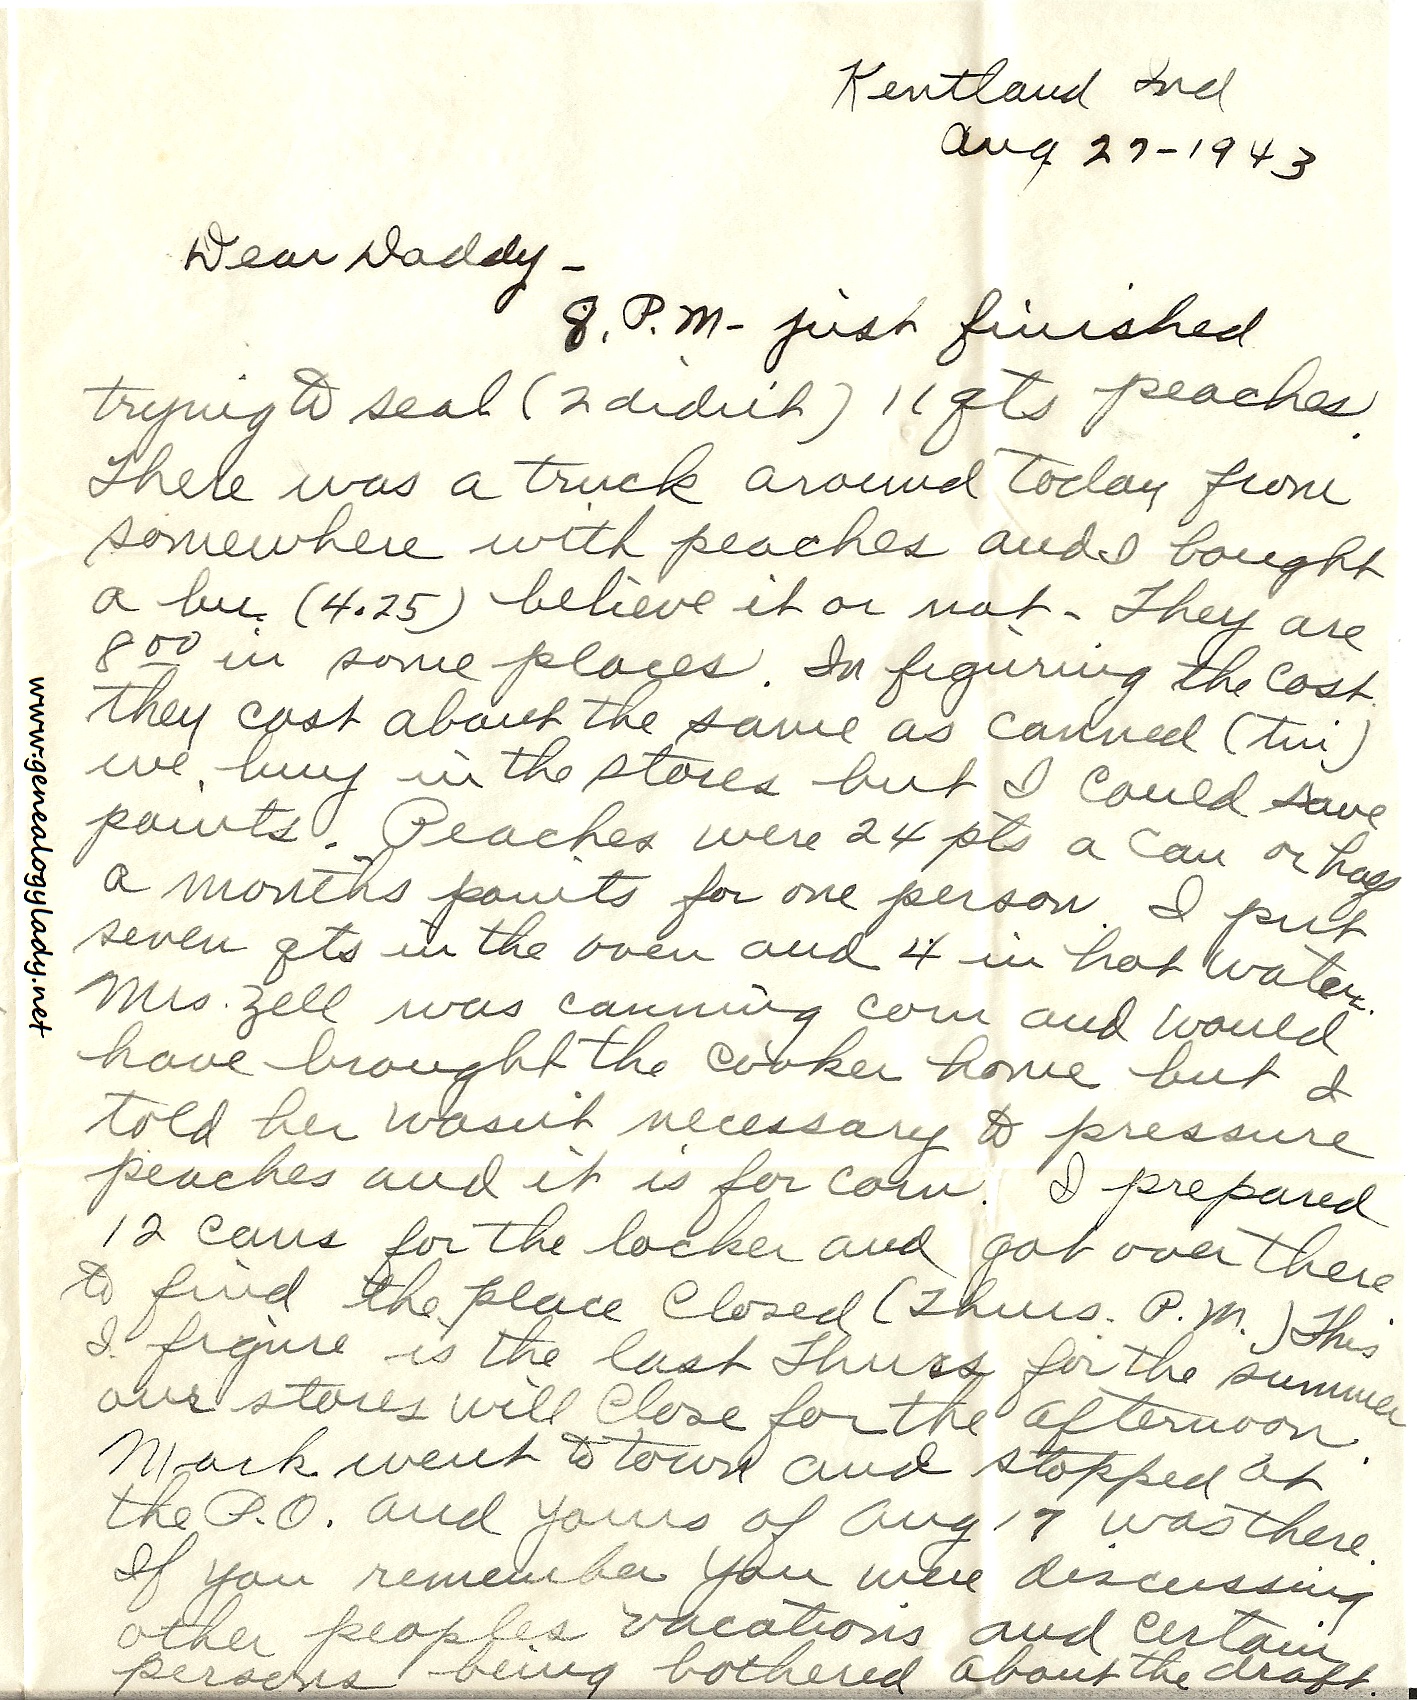 Kentland Ind
Aug 27-1943
Dear Daddy -
8. P.M- just finished
trying to seal (2 didn't) 11 qts peaches.
There was a truck around today from
somewhere with peaches and I bought
a bu. (4.25) believe it or not - They are
8 00 in some places. In figuring the cost.
they cost about the same as canned (tin)
we buy in the stores but I could save
points. Peaches were 24 pts a can or half
a months points for one person. I put
seven qts in the oven and 4 in hot water.
Mrs. Zell was canning corn and would
have brought the cooker home but I
told her wasn't necessary to pressure
peaches and it is for corn. I prepared
12 cans for the locker and got over there
to find the place closed (Thurs. P.M.) This
I figure is the last Thurs for the summer
our stores will close for the afternoon.
Mark went to town and stopped at
the P.O. and yours of Aug 17 was there.
If you remember you were discussing
other peoples vacations and certain
persons being bothered about the draft.
www.genealogylady.net